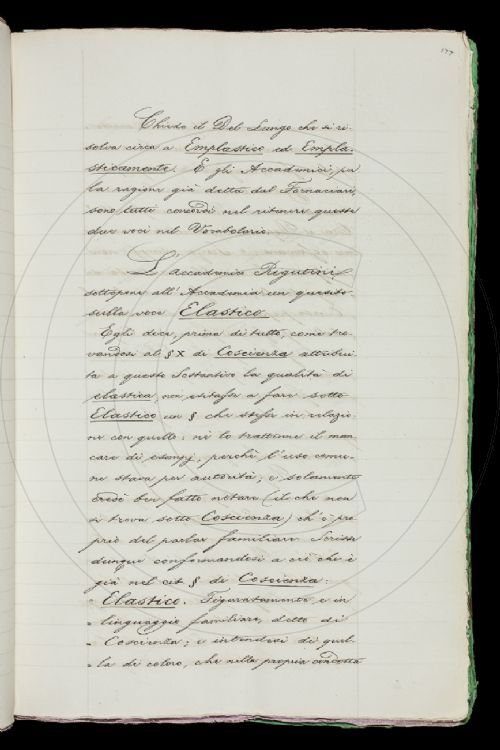 177
Chiede il Del Lungo che si ri-
solva circa a Emplastico ed Empla-
sticamente. E gli Accademici, per
la ragione già detta dal Fornaciari,
sono tutti concordi nel ritenere queste
due voci nel Vocabolario.
L'Accademico Rigutini
sottopone all'Accademia un quesito
sulla voce Elastico.
Egli dice, prima di tutto, come tro-
vandosi al § X di Coscienza attribui-
ta a questo Sostantivo la qualità di
elastica non esitasse a fare sotto
Elastico un § che stesse in relazio-
ne con quello; nè lo trattenne il man-
care di esempj, perchè l'uso comu-
ne stava per autorità; e solamente
credè ben fatto notare (il che non
si trova sotto Coscienza) ch'è pro-
prio del parlar familiare. Scrisse
dunque conformandosi a ciò che è
già nel cit. § di Coscienza:
" Elastico. Figuratamente, e in
" linguaggio familiare, detto di
" Coscienza; e intendesi di quel-
" la di coloro, che nella propria condotta